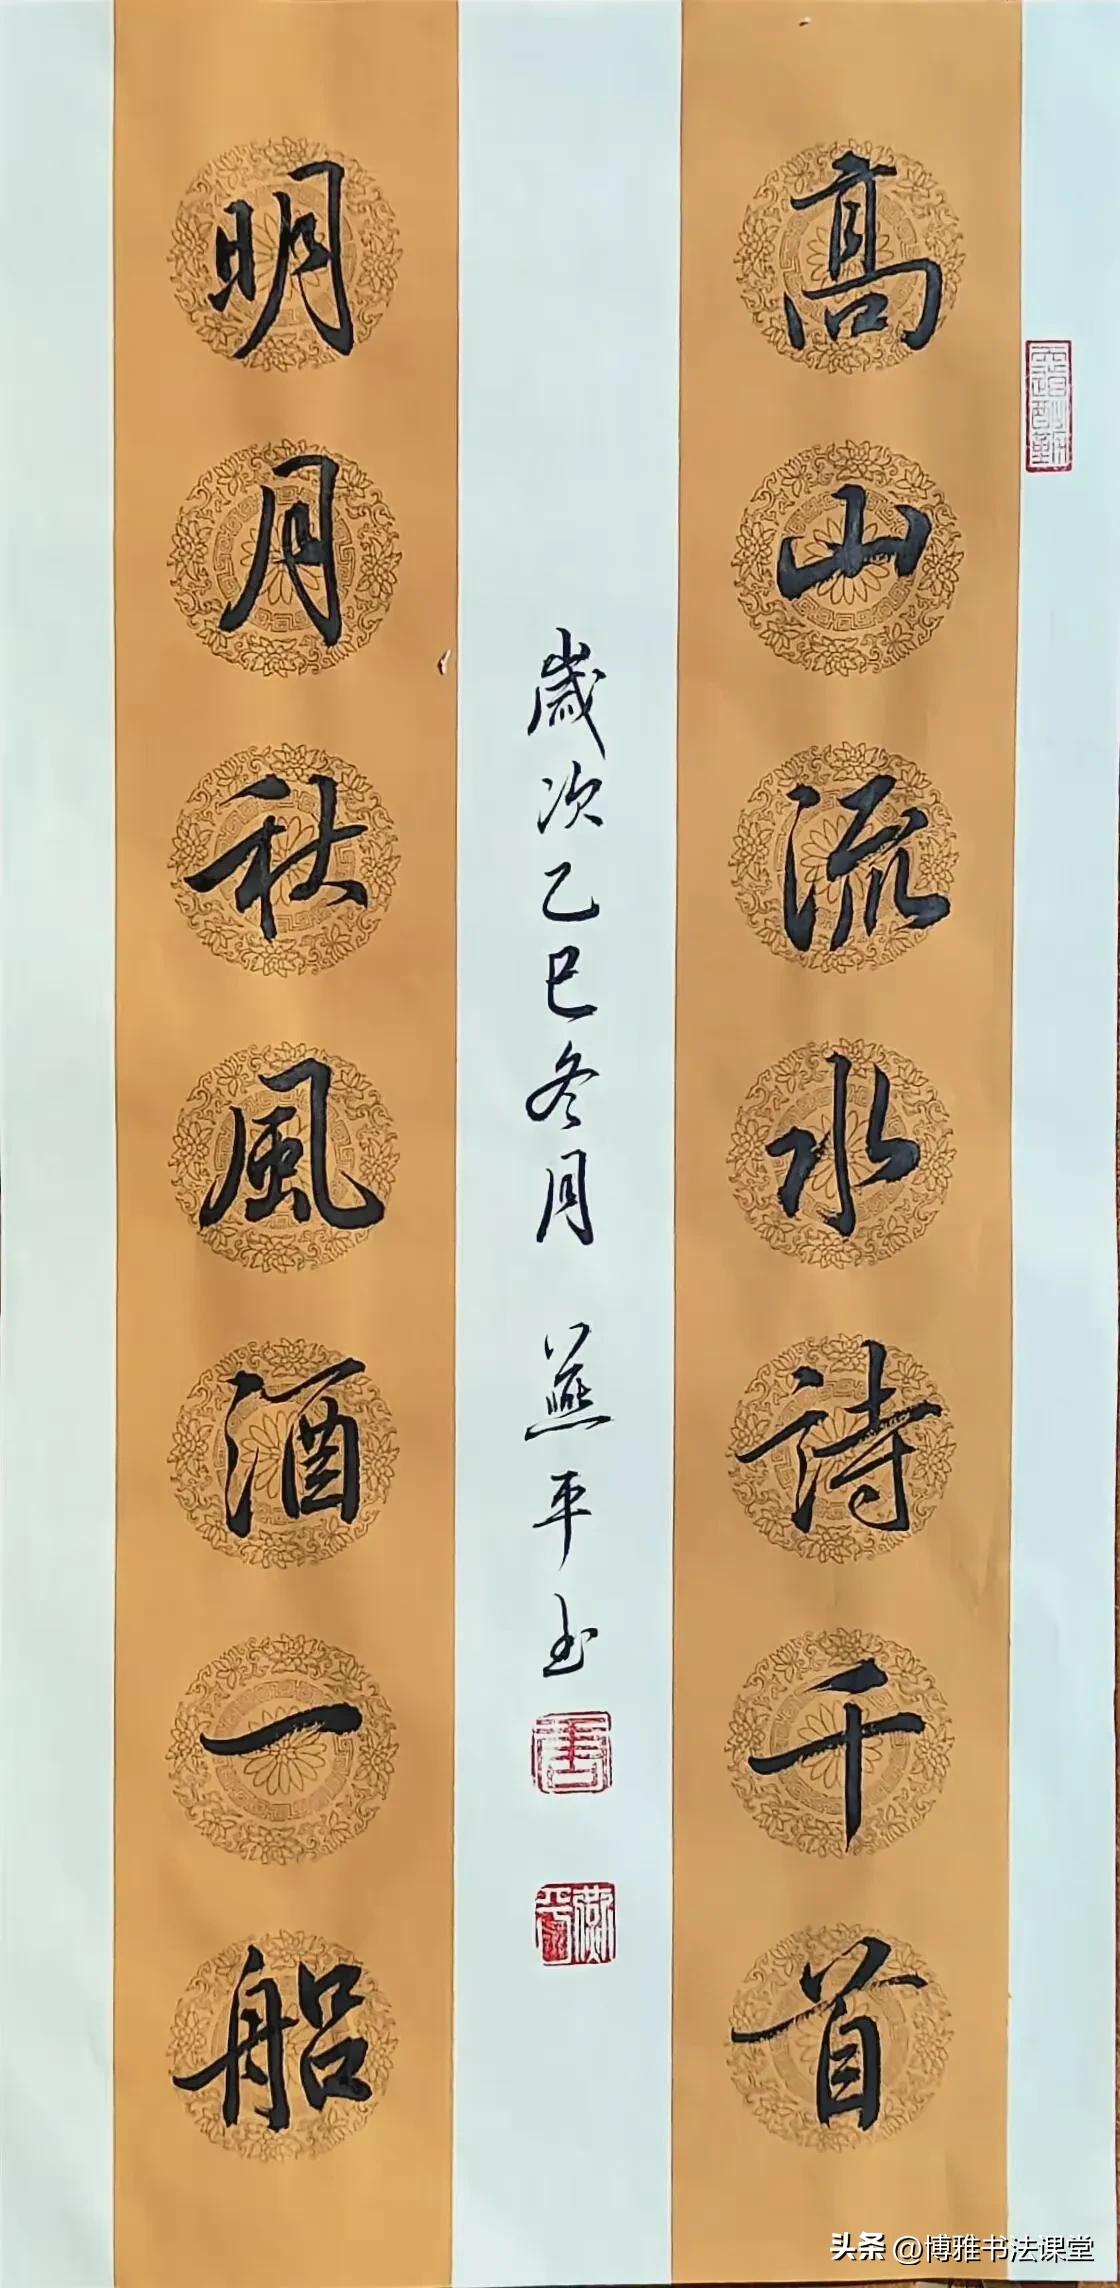 高山流水詩千首
明月秋風酒一船
歲次乙巳冬月 燕平书
頭条 @博雅书法课堂